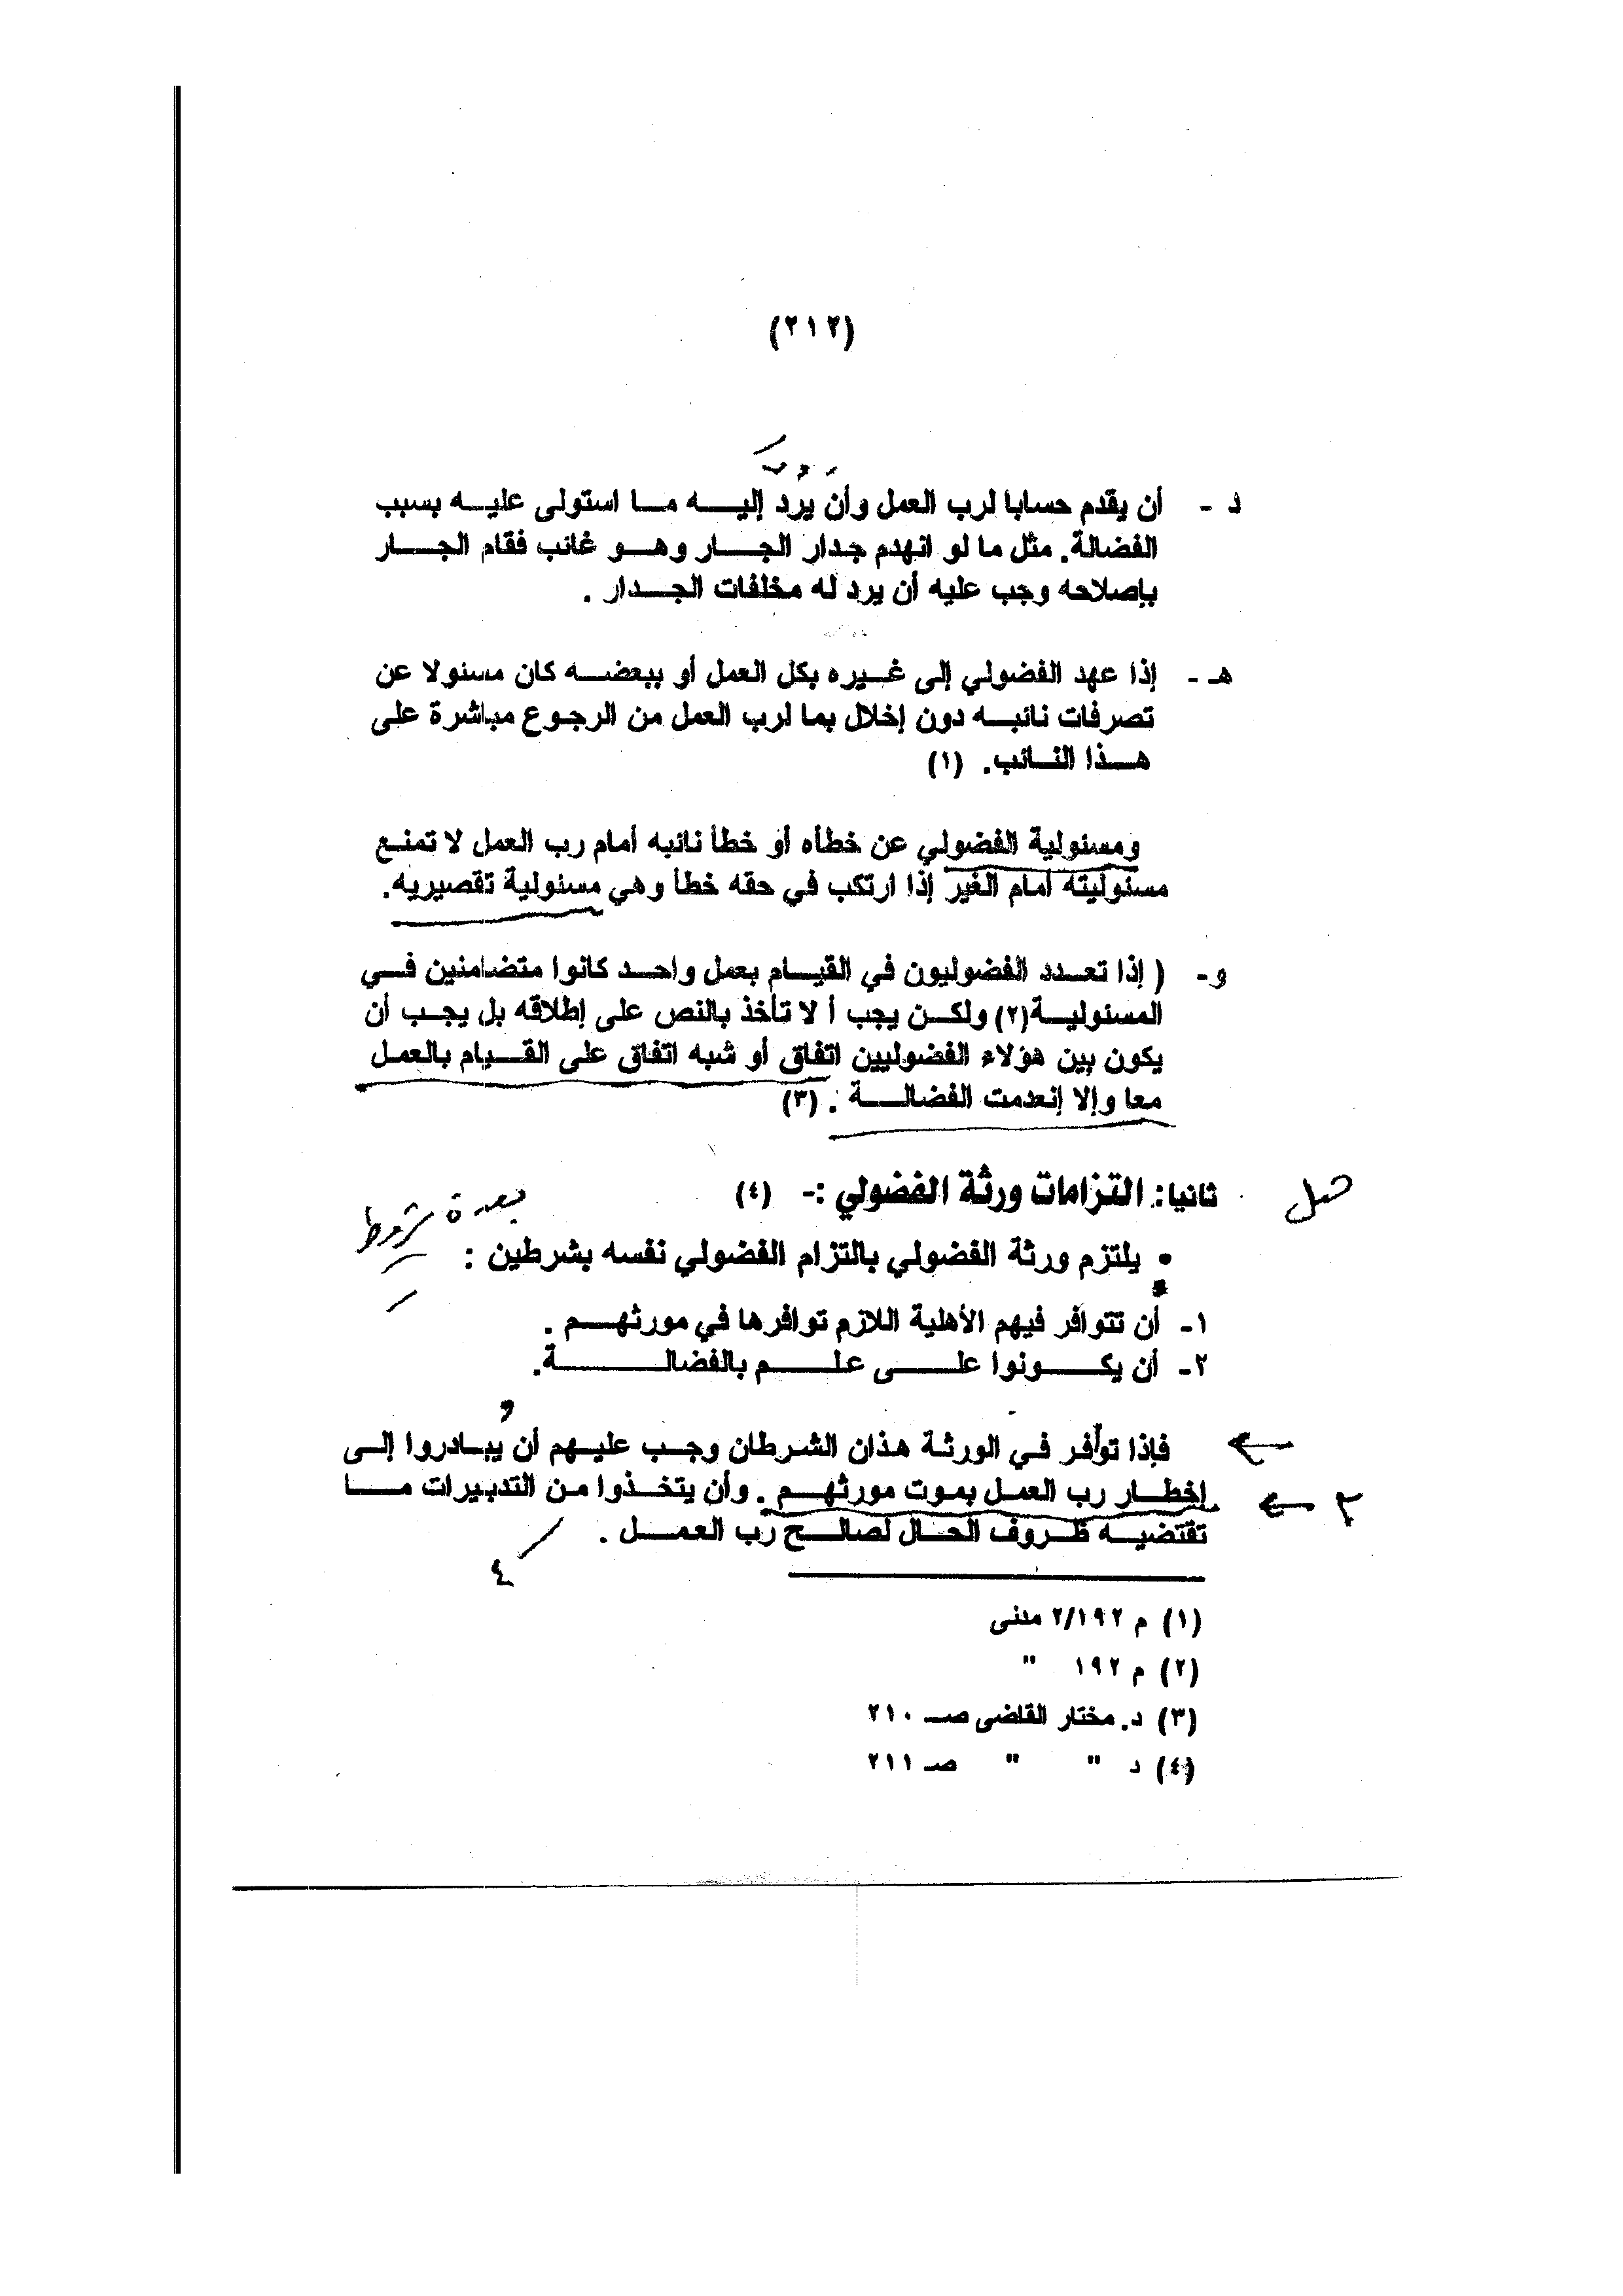 (٢١٢)
د - أن يقدم حسابا لرب العمل وأن يرد إليه ما استولى عليه بسبب
الفضالة. مثل ما لو انهدم جدار الجار وهو غائب فقام الجار
بإصلاحه وجب عليه أن يرد له مخلفات الجدار .
هـ - إذا عهد الفضولي إلى غيره بكل العمل أو ببعضه كان مسئولا عن
تصرفات نائبه دون إخلال بما لرب العمل من الرجوع مباشرة على
هذا النائب. (١)
ومسئولية الفضولي عن خطأه أو خطأ نائبه أمام رب العمل لا تمنع
مسئوليته أمام الغير إذا ارتكب في حقه خطأ وهي مسئولية تقصيريه.
و - ( إذا تعدد الفضوليون في القيام بعمل واحد كانوا متضامنين في
المسئولية(٢) ولكن يجب أ لا تأخذ بالنص على إطلاقه بل يجب أن
يكون بين هؤلاء الفضوليين اتفاق أو شبه اتفاق على القيام بالعمل
معا وإلا إنعدمت الفضالة . (٣)
ثانيا: التزامات ورثة الفضولي :- (٤)
بعدة شروط
• يلتزم ورثة الفضولي بالتزام الفضولي نفسه بشرطين :
١- أن تتوافر فيهم الأهلية اللازم توافرها في مورثهم .
٢- أن يكونوا على علم بالفضالة.
فإذا توافر في الورثة هذان الشرطان وجب عليهم أن يبادروا إلى
إخطار رب العمل بموت مورثهم . وأن يتخذوا من التدبيرات ما
٣
تقتضيه ظروف الحال لصالح رب العمل .
٤
(١) م ٢/١٩٢ مدنى
(٢) م ١٩٢ "
(٣) د. مختار القاضى صـ ٢١٠
(٤) د " " صـ ٢١١